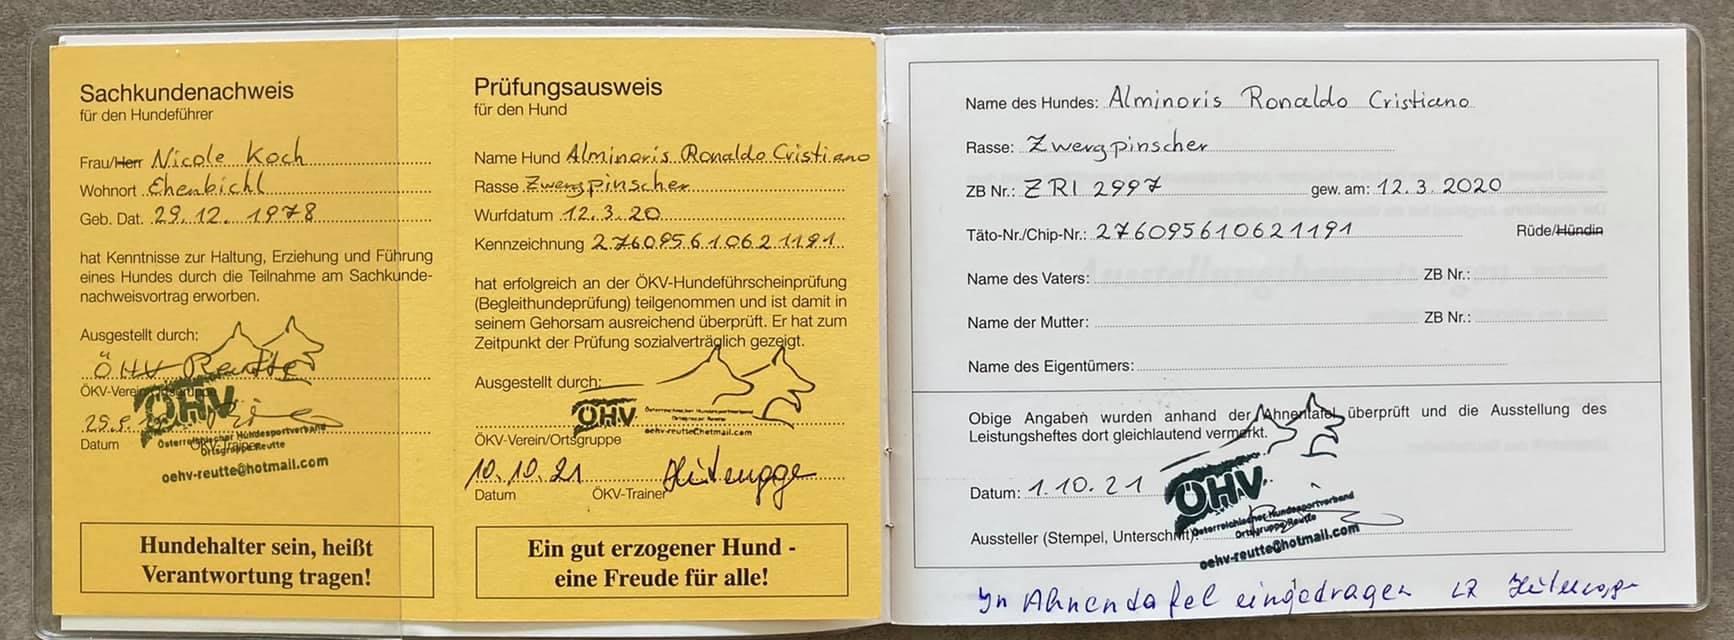 Sachkundenachweis
für den Hundeführer
Frau/Herr Nicole Koch
Wohnort Ehenbichl
Geb. Dat. 29.12.1978
hat Kenntnisse zur Haltung, Erziehung und Führung
eines Hundes durch die Teilnahme am Sachkunde-
nachweisvortrag erworben.
Ausgestellt durch:
ÖHV Reutte
ÖKV-Verein/Ortsgruppe
ÖHV
Österreichischer Hundesportverband
Ortsgruppe Reutte
Datum ÖKV-Trainer
oehv-reutte@hotmail.com
Hundehalter sein, heißt
Verantwortung tragen!
Prüfungsausweis
für den Hund
Name Hund Alminoris Ronaldo Cristiano
Rasse Zwergpinscher
Wurfdatum 12.3.20
Kennzeichnung 276095610621191
hat erfolgreich an der ÖKV-Hundeführscheinprüfung
(Begleithundeprüfung) teilgenommen und ist damit in
seinem Gehorsam ausreichend überprüft. Er hat zum
Zeitpunkt der Prüfung sozialverträglich gezeigt.
Ausgestellt durch:
ÖHV
Österreichischer Hundesportverband
Ortsgruppe Reutte
oehv-reutte@hotmail.com
ÖKV-Verein/Ortsgruppe
10.10.21
Datum ÖKV-Trainer
Ein gut erzogener Hund -
eine Freude für alle!
Name des Hundes: Alminoris Ronaldo Cristiano
Rasse: Zwergpinscher
ZB Nr.: ZRI 2997 gew. am: 12.3.2020
Täto-Nr./Chip-Nr.: 276095610621191 Rüde/Hündin
Name des Vaters: ZB Nr.:
Name der Mutter: ZB Nr.:
Name des Eigentümers:
Obige Angaben wurden anhand der Ahnentafel überprüft und die Ausstellung des
Leistungsheftes dort gleichlautend vermerkt.
Datum: 1.10.21
ÖHV
Österreichischer Hundesportverband
Ortsgruppe Reutte
Aussteller (Stempel, Unterschrift):
oehv-reutte@hotmail.com
In Ahnentafel eingetragen